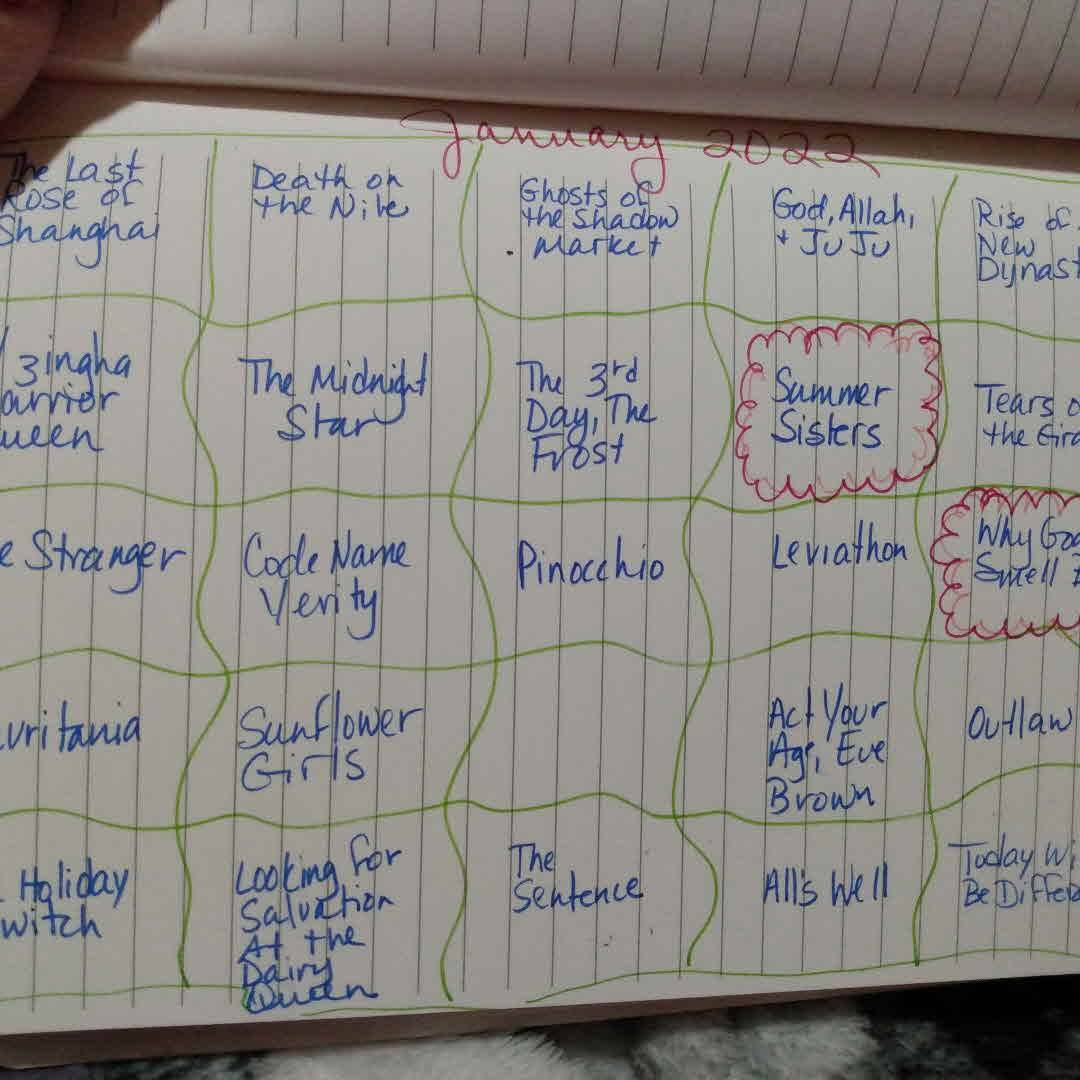 January 2022
The Last
Rose of
Shanghai
Death on
the Nile
Ghosts of
the Shadow
Market
God, Allah,
+ Ju Ju
Rise of
New
Dynast
zingha
arrior
ueen
The Midnight
Star
The 3rd
Day, The
Frost
Summer
Sisters
Tears o
the Gira
e Stranger
Code Name
Verity
Pinocchio
Leviathon
Why God
Smell
uritania
Sunflower
Girls
Act Your
Age, Eve
Brown
Outlaw
Holiday
witch
Looking for
Salvation
At the
Dairy
Queen
The
Sentence
All's Well
Today Wi
Be Differe